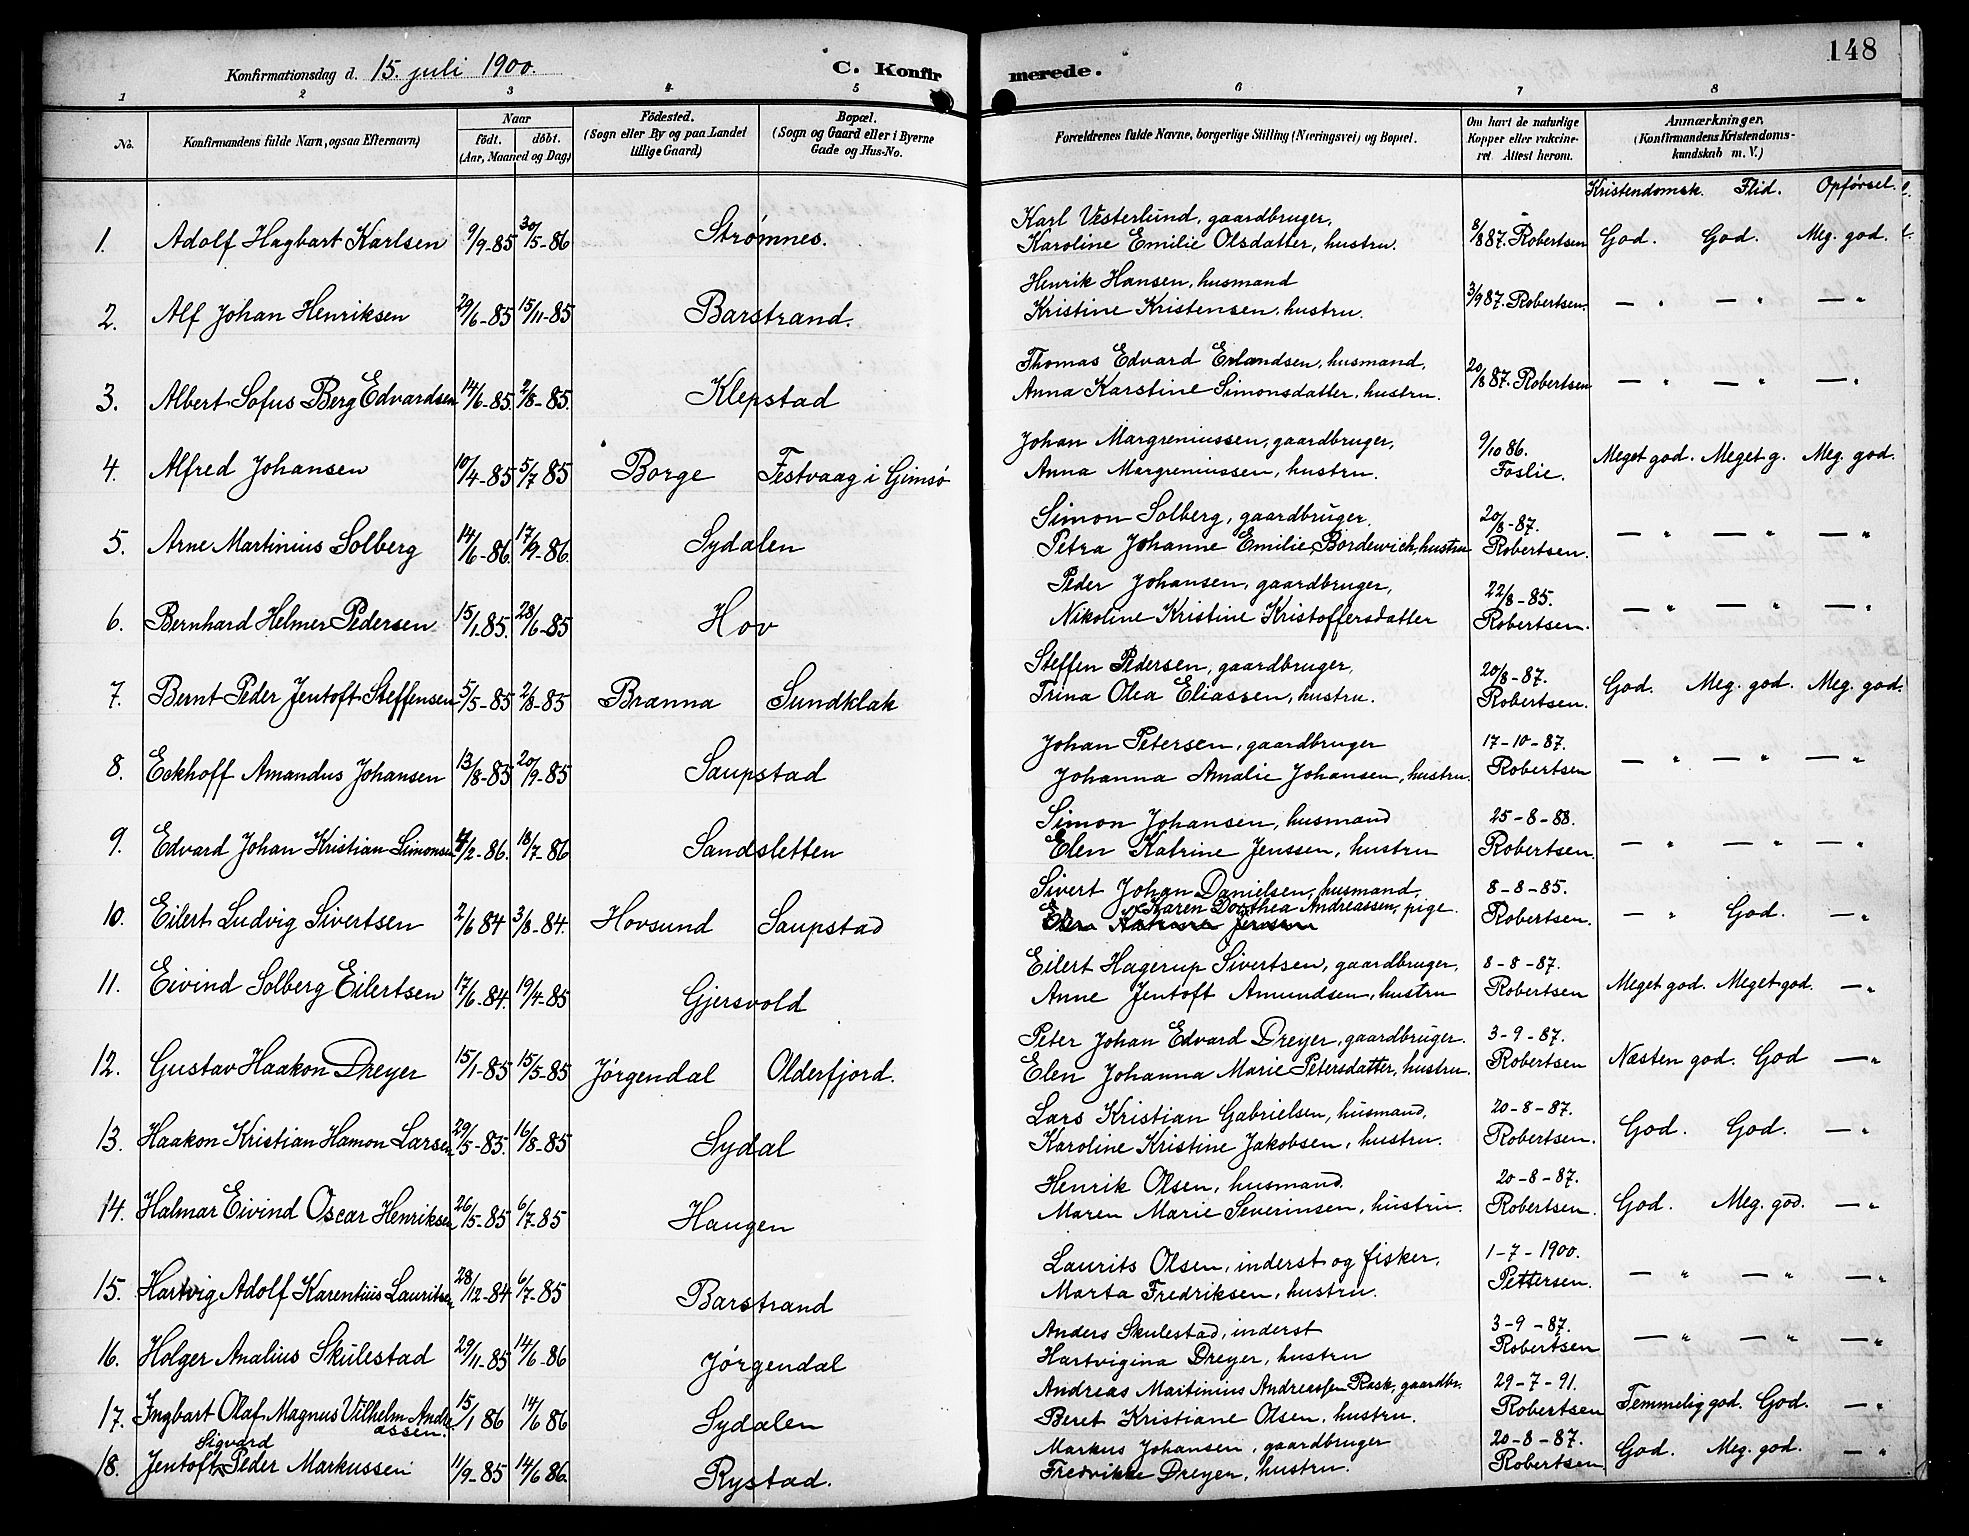 Konfirmationsdag d. 15. juli 1900. C. Konfir merede. 148
1 2 3 4 5 6 7 8
No. Konfirmandens fulde Navn, ogsaa Efternavn) Naar født. døbt. (Aar, Maaned og Dag) Födested. (Sogn eller By og paa Landet tillige Gaard) Bopæl. (Sogn og Gaard eller i Byerne Gade og Hus-No. Forældrenes fulde Navne, borgerlige Stilling (Næringsvei) og Bopæl. Om havt de naturlige Kopper eller vakcineret. Attest herom. Anmærkninger, (Konfirmandens Kristendomskundskab m. V.)
Kristendomsk. Flid. Opførsel.
1. Adolf Hagbart Karlsen 9/9-85 30/5-86 Strømnes. Karl Vesterlund, gaardbruger, 8/8 87. Robertsen God. God. Meg. god.
Karoline Emilie Olsdatter, hustru.
2. Alf Johan Henriksen 29/6-85 15/11-85 Barstrand. Henrik Hansen, husmand 3/9 87. Robertsen. — " — " — "
Kristine Kristensen, hustru.
3. Albert Sofus Berg Edvardsen 14/6-85. 2/8-85. Klepstad Thomas Edvard Erlandsen, husmand, 20/8 87. Robertsen — " — " — "
Anna Karstine Simonsdatter, hustru.
4. Alfred Johansen 10/4-85 5/7 85 Borge Festvaag i Gimsø Johan Margreniussen, gaardbruger, 9/10 86. Foslie. Meget god. Meget g. Meg. god.
Anna Margreniussen, hustru.
5. Arne Martinius Solberg 14/6-86. 17/9-86. Sydalen Simon Solberg, gaardbruger, 20/8-87. Robertsen. — " — " — "
Petra Johanne Emilie Bordewich, hustru
6. Bernhard Helmer Pedersen 15/1-85. 28/6-85 Hov Peder Johansen, gaardbruger, 22/8-85. Robertsen. — " — " — "
Nikoline Kristine Kristoffersdatter
7. Bernt Peder Jentoft Steffensen 5/5-85 2/8-85 Brænna Sundklak Steffen Pedersen, gaardbruger, 20/8-87. Robertsen. God. Meg. god. Meg. god.
Trina Olea Eliassen, hustru.
8. Eckhoff Amandus Johansen 13/8-85 20/9-85 Saupstad Johan Petersen, gaardbruger 17-10-87. Robertsen — " — " — "
Johanna Amalie Johansen, hustru.
9. Edvard Johan Kristian Simonsen /2-86. 18/7-86 Sandsletten Simon Johansen, husmand 25-8-88. Robertsen. — " — " — "
Elen Katrine Jenssen, hustru
10. Eilert Ludvig Sivertsen 2/6 84 3/8-84. Hovsund Saupstad Sivert Johan Danielsen, husmand, 8-8-85. Robertsen. — " God. — "
Karen Dorthea Andreassen, pige.
Elen Katrine Jenssen
11. Eivind Solberg Eilertsen 17/6-84. 19/4-85 Gjersvold Eilert Hagerup Sivertsen, gaardbruger, 8-8-87. Robertsen Meget god. Meget god. — "
Anne Jentoft Amundsen, hustru
12. Gustav Haakon Dreyer 15/1-85 15/5-85 Jørgendal Olderfjord. Peter Johan Edvard Dreyer, gaardbruger. 3-9-87. Robertsen Næsten god. God — "
Elen Johanna Marie Petersdatter, hustru.
13. Haakon Kristian Hamon Larsen 29/5-85. 16/8-85 Sydal Lars Kristian Gabrielsen, husmand, 20-8-87. Robertsen. God. God. — "
Karoline Kristine Jakobsen, hustru.
14. Halmar Eivind Oscar Henriksen 26/5-85 6/7-85 Haugen Henrik Olsen, husmand. 20-8-87. Robertsen. God. Meg. god. — "
Maren Marie Severinsen, hustru.
15. Hartvig Adolf Karentius Lauritsen 28/12-84 6/7-85 Barstrand Laurits Olsen, inderst og fisker, 1-7-1900. Pettersen. — " — " — "
Marta Fredriksen, hustru.
16. Holger Analius Skulestad 29/11-85 14/6-86 Jørgendal Anders Skulestad, inderst 3-9-87. Robertsen — " — " — "
Hartvigina Dreyer, hustru
17. Ingbart Olaf Magnus Vilhelm Andreassen. 15/1 86 14/6 86 Sydalen Andreas Martinius Andreassen Rask, gaardbr. 29-7-91. Robertsen Temmelig god. God. — "
Beret Kristiane Olsen, hustru.
18. Jentoft Sigvard Peder Markussen 11/9-85 14/6 86. Rystad. Markus Johansen, gaardbruger 20-8-87. Robertsen God. Meg. god. — "
Fredrikke Dreyer, hustru.